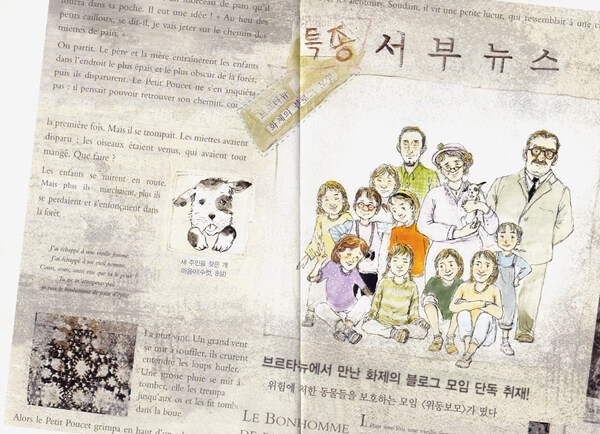 morceau de pain qu'il
fourra dans sa poche. Il eut une idée ! « Au lieu des
petits cailloux, se dit-il, je vais jeter sur le chemin des
miettes de pain. »
On partit. Le père et la mère entraînèrent les enfants
dans l'endroit le plus épais et le plus obscur de la forêt,
puis ils disparurent. Le Petit Poucet ne s'en inquiéta
pas : il pensait pouvoir retrouver son chemin,
la première fois. Mais il se trompait. Les miettes avaient
disparu : les oiseaux étaient venus, qui avaient tout
mangé. Que faire ?
Les enfants se mirent en route.
Mais plus ils marchaient, plus ils
se perdaient et s'enfonçaient dans
la forêt.
J'ai échappé à une vieille femme
J'ai échappé à un vieil homme
새 주인을 찾은 개
La nuit vint. Un grand vent
se mit à souffler, ils crurent
entendre les loups hurler.
Une grosse pluie se mit à
tomber, elle les trempa
jusqu'aux os et les fit tomber
dans la boue.
Alors le Petit Poucet grimpa en haut d'un
Soudain, il vit une petite lueur, qui ressemblait à une
특종 서부뉴스
브르타뉴
화제의 블로그
브르타뉴에서 만난 화제의 블로그 모임 단독 취재!
위험에 처한 동물들을 보호하는 모임 <위동보모>가 떴다
LE BONHOMME